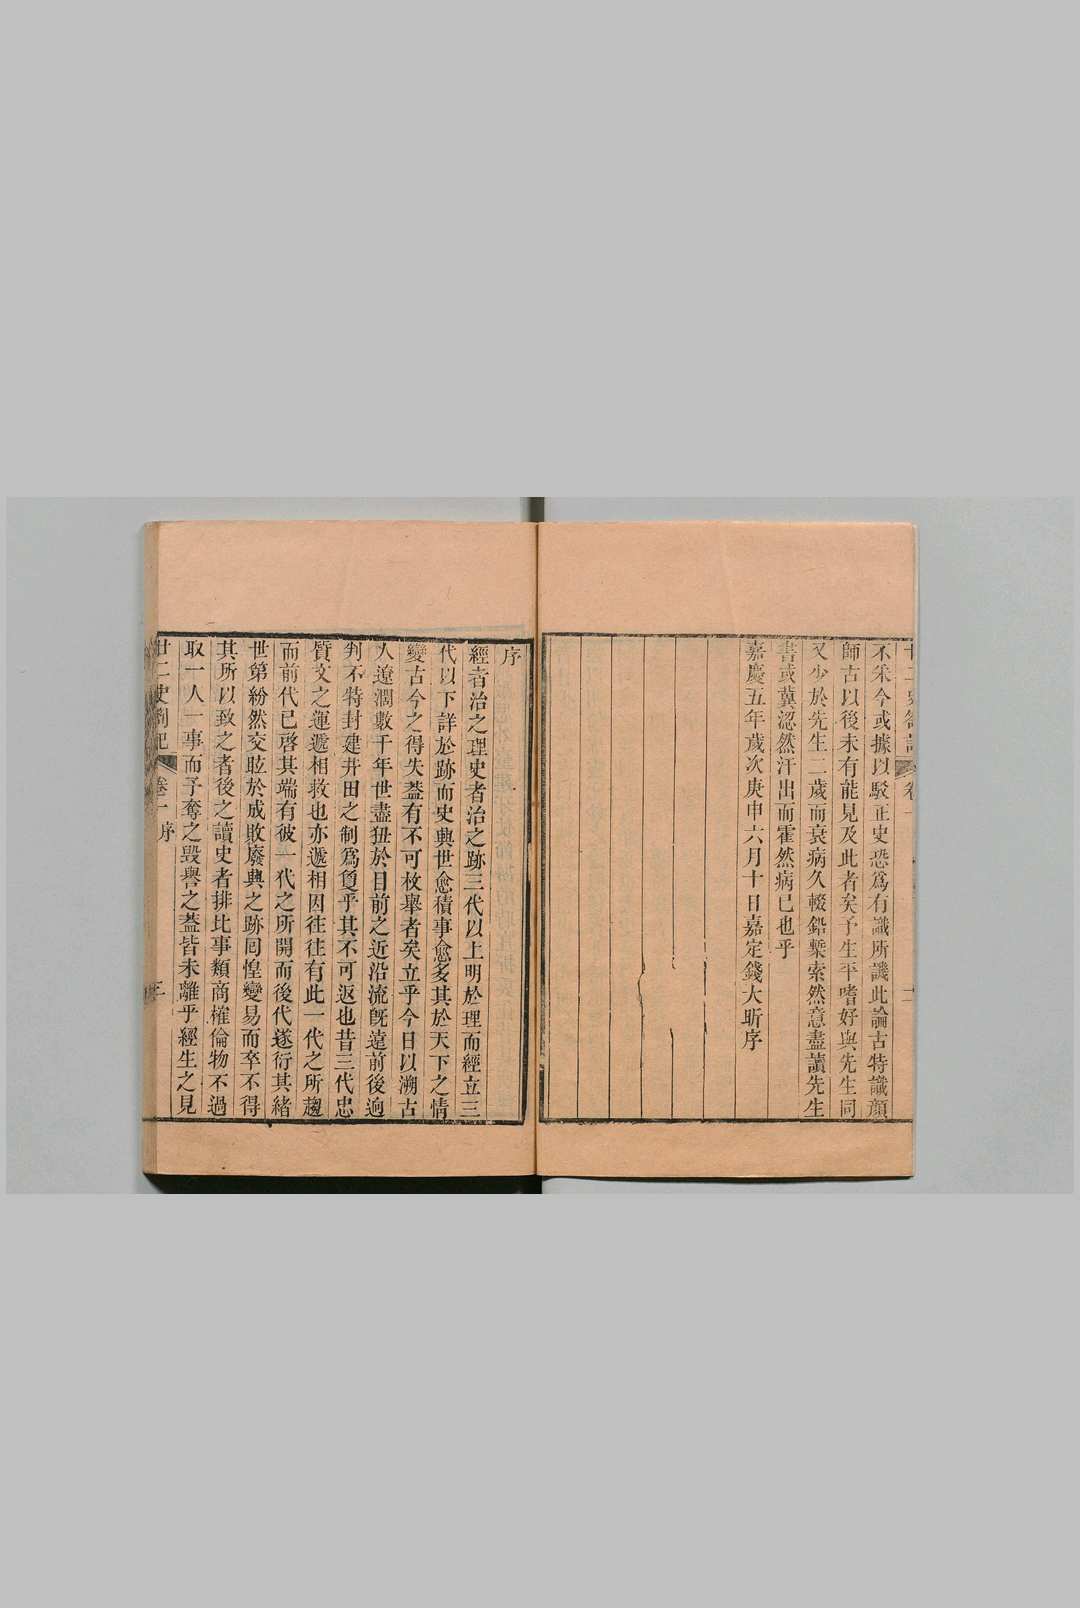 不采今或據以駁正史恐爲有識所譏此論古特識顏
師古以後未有能見及此者矣予生平嗜好與先生同
又少於先生二歲而衰病久輟鉛槧索然意盡讀先生
書或冀涊然汗出而霍然病已也乎
嘉慶五年歲次庚申六月十日嘉定錢大昕序
序
經者治之理史者治之跡三代以上明於理而經立三
代以下詳於跡而史興世愈積事愈多其於天下之情
變古今之得失葢有不可枚舉者矣立乎今日以溯古
人遼濶數千年世盡狃於目前之近沿流旣遠前後逈
判不特封建井田之制爲敻乎其不可返也昔三代忠
質文之運遞相救也亦遞相因往往有此一代之所趨
而前代已啓其端有彼一代之所開而後代遂衍其緒
世第紛然交眩於成敗廢興之跡囘惶變易而卒不得
其所以致之者後之讀史者排比事類商榷倫物不過
取一人一事而予奪之毀譽之葢皆未離乎經生之見
廿二史劄記 卷一 序 一